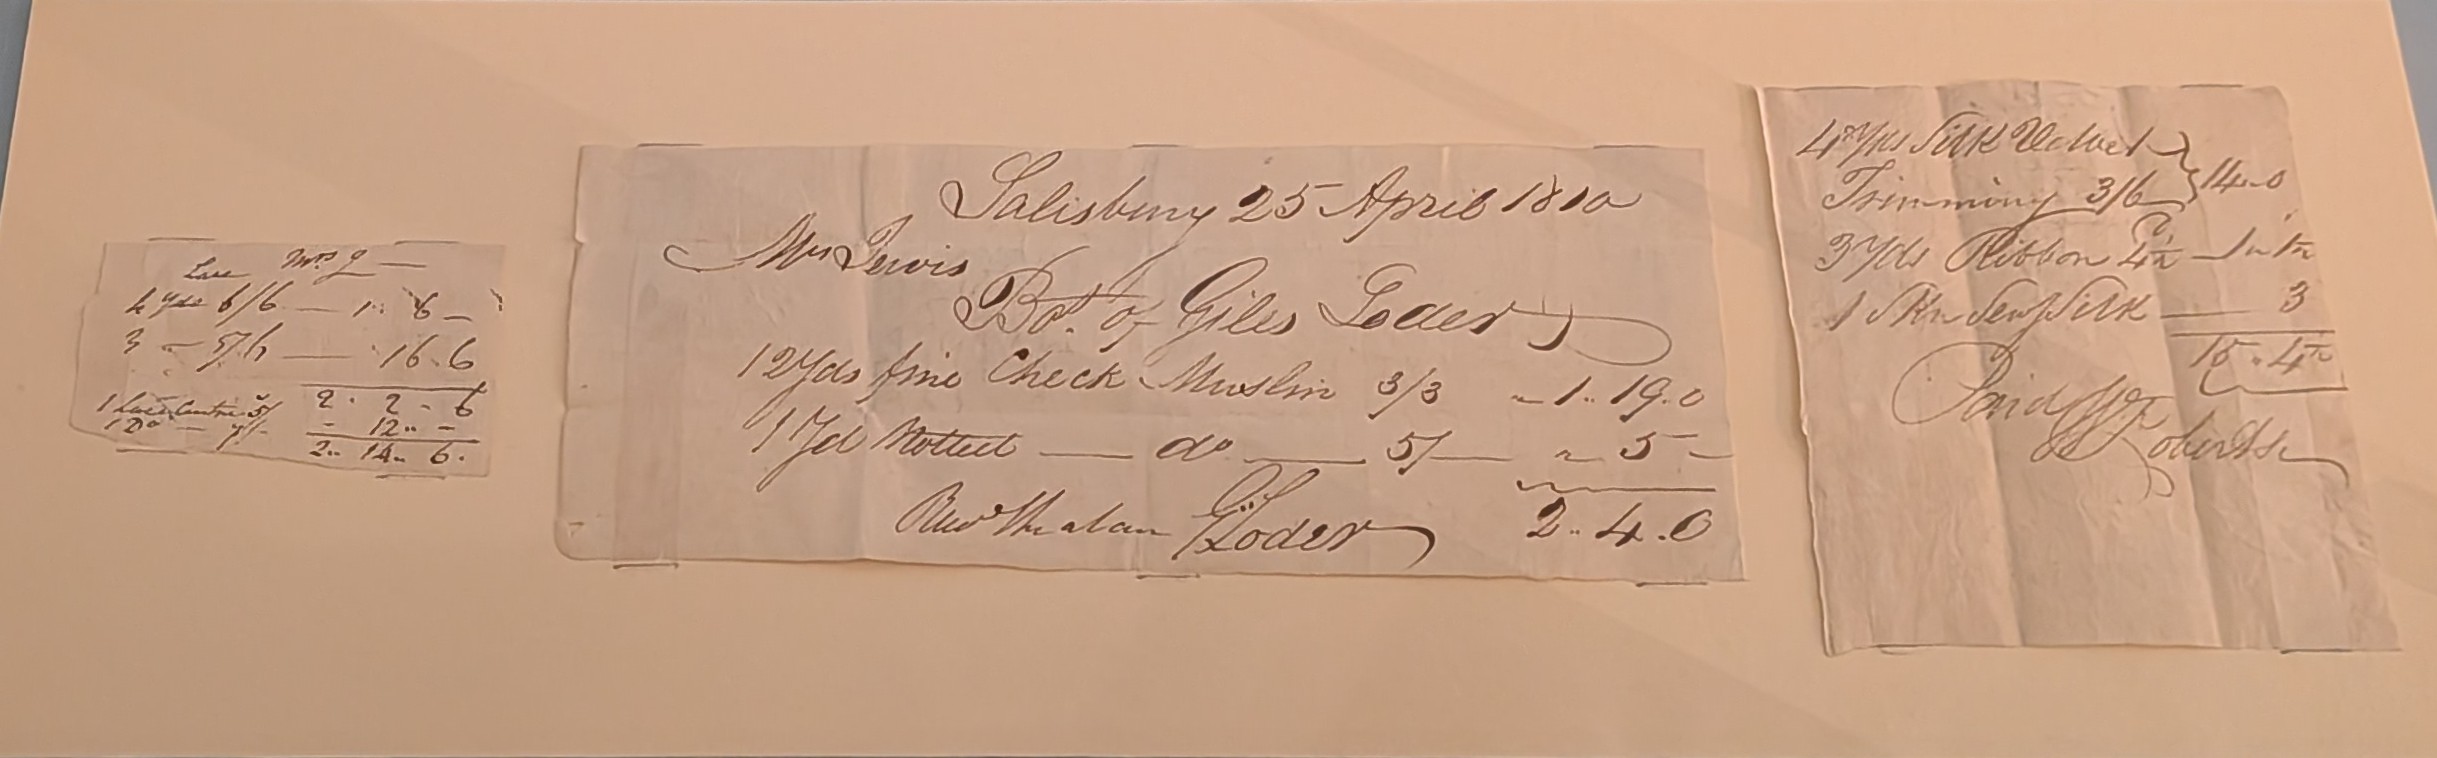 Lace Mrs J —
4 yds 6/6 — 1 " 6 —
3 — 5/6 — 16 " 6
2 " 2 " 6
1 Lace 5/
1 Do — 7/- - 12 " -
2 " 14 " 6.
Salisbury 25 April 1810
Mrs Jervis
Bot. of Giles Loder
12 Yds fine Check Muslin 3/3 " 1 " 19 " 0
1 Yd — do — 5/— " 5 —
G Loder 2 " 4 " 0
4 Yds Silk Velvet
Trimming 3/6 } 14 " 0
3 Yds Ribbon 4½ — 1 " 1½
1 Skn Sewg Silk — 3
15 " 4½
Paid W Roberts